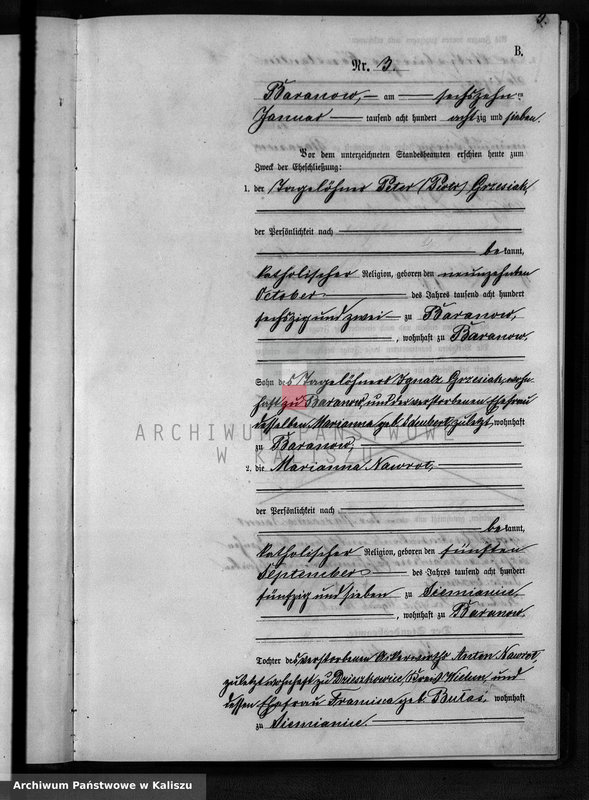 B.
Nr. 3.
Baranow, am sechszehnten
Januar tausend acht hundert achtzig und sieben.
Vor dem unterzeichneten Standesbeamten erschien heute zum
Zweck der Eheschließung:
1. der Tagelöhner Peter (Piotr) Grzesiak,
der Persönlichkeit nach
bekannt,
katholischer Religion, geboren den neunzehnten
October des Jahres tausend acht hundert
sechszig und zwei zu Baranow,
, wohnhaft zu Baranow,
Sohn des Tagelöhners Ignatz Grzesiak, wohn-
haft zu Baranow, und der verstorbenen Ehefrau
desselben Marianna geb. zuletzt, wohnhaft
zu Baranow,
ARCHIWUM PAŃSTWOWE
W KALISZU
2. die Marianna Nawrot,
der Persönlichkeit nach
bekannt,
katholischer Religion, geboren den fünften
September des Jahres tausend acht hundert
fünfzig und sieben zu Siemianice,
, wohnhaft zu Baranow,
Tochter des verstorbenen Ackerwirths Anton Nawrot,
zuletzt wohnhaft zu Kreis Wielun, und
dessen Ehefrau geb. wohnhaft
zu Siemianice.
Archiwum Państwowe w Kaliszu